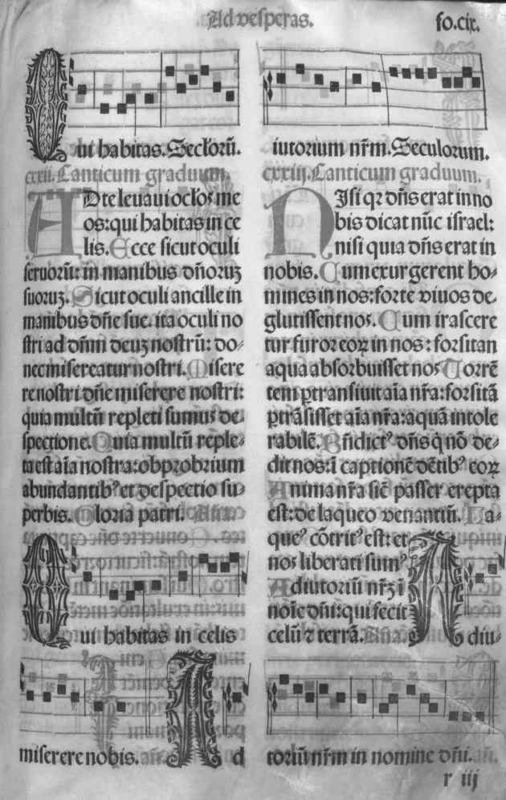 Ad vesperas.
fo.cix.
Qui habitas. Seclorū.
cxxii. Canticum graduum.
ADte leuaui oclōs me
os: qui habitas in ce
lis. Ecce sicut oculi
seruorū: in manibus dn̄oruꝫ
suoruꝫ. Sicut oculi ancille in
manibus dn̄e sue. ita oculi no
stri ad dn̄m deuꝫ nostrū: do-
nec misereatur nostri. Misere
re nostri dn̄e miserere nostri:
quia multū repleti sumus de-
spectione. Quia multū reple-
ta est aīa nostra: obprobrium
abundantibꝰ et despectio su-
perbis. Gloria patri. Aña.
Qui habitas in celis
miserere nobis. Ad
iutorium nr̄m. Seculorum.
cxxiii. Canticum graduum.
NIsi qꝛ dn̄s erat in no
bis dicat nūc israel:
nisi quia dn̄s erat in
nobis. Cum exurgerent ho-
mines in nos: forte viuos de-
glutissent nos. Cum irascere
tur furor eoꝝ in nos: forsitan
aqua absorbuisset nos. Torrē
tem ꝑtransiuit aīa nr̄a: forsitā
ꝑtrāsisset aīa nr̄a: aquā intole
rabilē. Bn̄dictꝰ dn̄s q̄ nō de-
dit nos: ī captionē dētibꝰ eoꝝ
Anima nr̄a sic̄ passer erepta
est: de laqueo venantiū. La-
queꝰ cōtritꝰ est: et
nos liberati sumꝰ
Adiutoriū nr̄ꝫ ī
noīe dn̄i: qui fecit
celū ⁊ terrā. Aña. Adiu-
toriū nr̄m in nomine dn̄i.
r iij